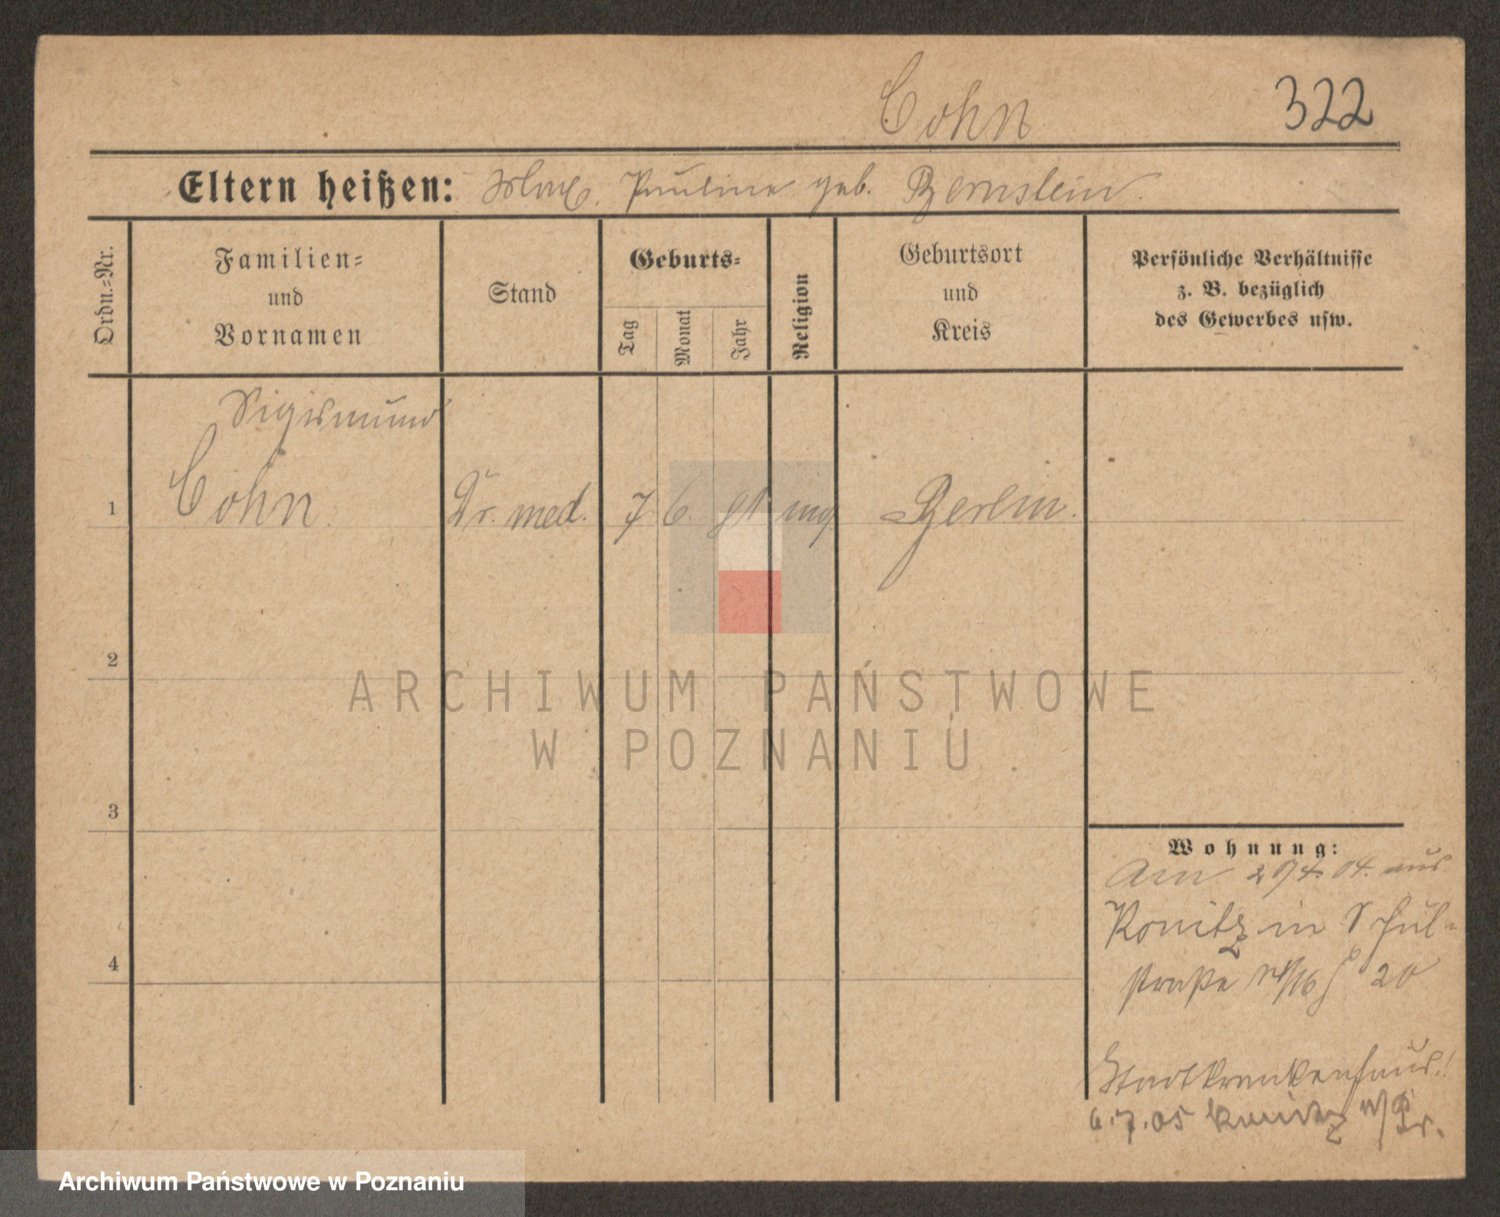 Cohn 322
Eltern heißen: Max, Pauline geb. Bernstein
Ordn.=Nr.
Familien=
und
Vornamen
Stand
Geburts=
Tag
Monat
Jahr
Religion
Geburtsort
und
Kreis
Persönliche Verhältnisse
z. B. bezüglich
des Gewerbes usw.
Sigismund
1 Cohn. Dr. med. 7 6. Berlin.
2
3
4
Wohnung:
Am 29 4. 04. aus
Konitz in Schul-
straße 20
Stadtkrankenhaus!
6.7.05 Konitz W/Pr.
ARCHIWUM PAŃSTWOWE
W POZNANIU
Archiwum Państwowe w Poznaniu